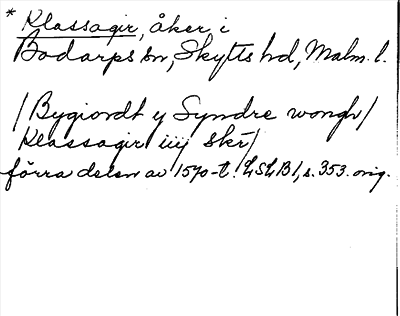 * Klassagir, åker i
Bodarps sn, Skytts hd, Malm. l.
/Bygiordt y Syndre wongh/
Klassagir iiij skr/
förra delen av 1570-t. LSLB1, s. 353. orig.